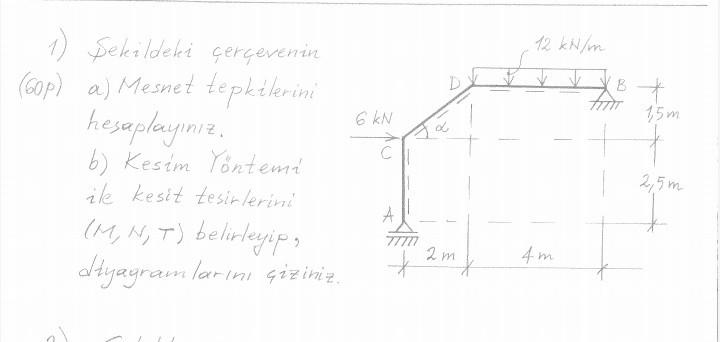 1) Şekildeki çerçevenin
(60p) a) Mesnet tepkilerini
hesaplayınız.
b) Kesim Yöntemi
ile kesit tesirlerini
(M, N, T) belirleyip,
diyagramlarını çiziniz.
12 kN/m
D
B
6 kN
α
C
1,5m
2,5m
A
2m
4m